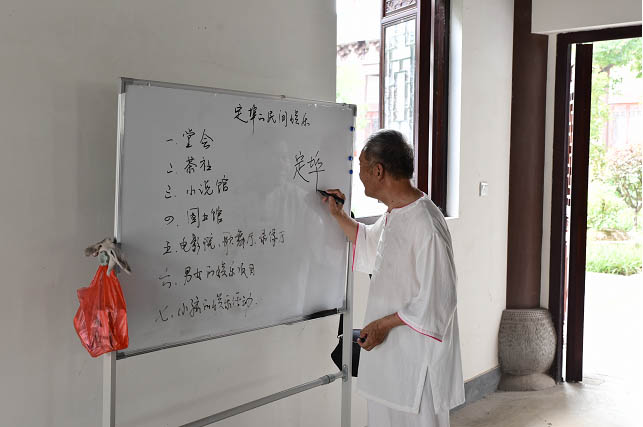 定埠之民间娱乐
一. 堂会
二. 茶社
三. 小说馆
四. 图书馆
五. 电影院、歌舞厅、录像厅
六. 男女的娱乐项目
七. 小孩的娱乐活动.
定埠